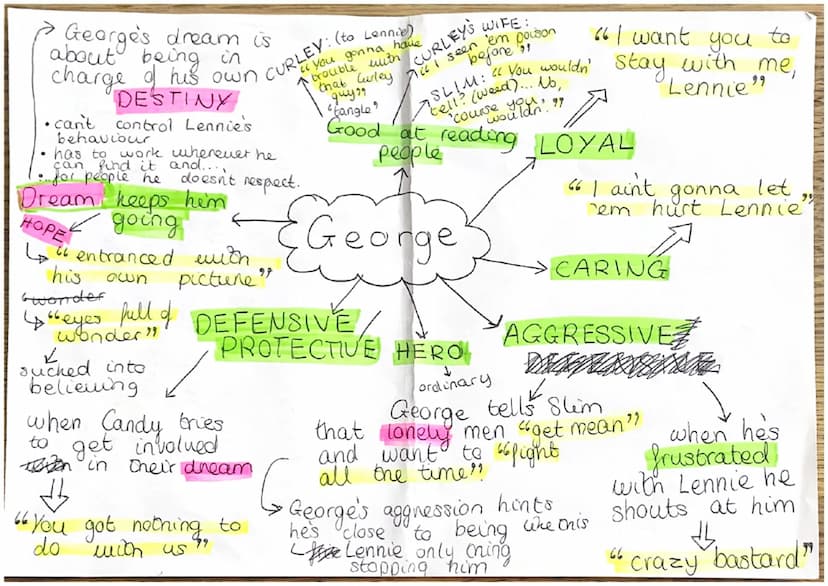 George's dream is
about being in
charge of his own
DESTINY
• can't control Lennie's
behaviour
• has to work wherever he
can find it and...
...for people he doesn't respect.
Dream keeps him
going
HOPE
"entranced with
his own picture"
"wonder
"eyes full of
wonder"
sucked into
believing
CURLEY: (to Lennie)
"You gonna have
trouble with
that Curley
guy"
"tangle"
CURLEY'S WIFE:
"I seen 'em poison
before"
SLIM: "You wouldn'
tell? (weed)... No,
'course you
wouldn'."
Good at reading
people
"I want you to
stay with me,
Lennie"
LOYAL
"I ain't gonna let
'em hurt Lennie"
CARING
George
DEFENSIVE
PROTECTIVE
when Candy tries
to get involved
in their dream
"You got nothing to
do with us"
HERO
ordinary
AGGRESSIVE
George tells Slim
that lonely men "get mean"
and want to "fight
all the time".
George's aggression hints
he's close to being like this
Lennie only thing
stopping him
when he's
frustrated
with Lennie he
shouts at him
"crazy bastard"